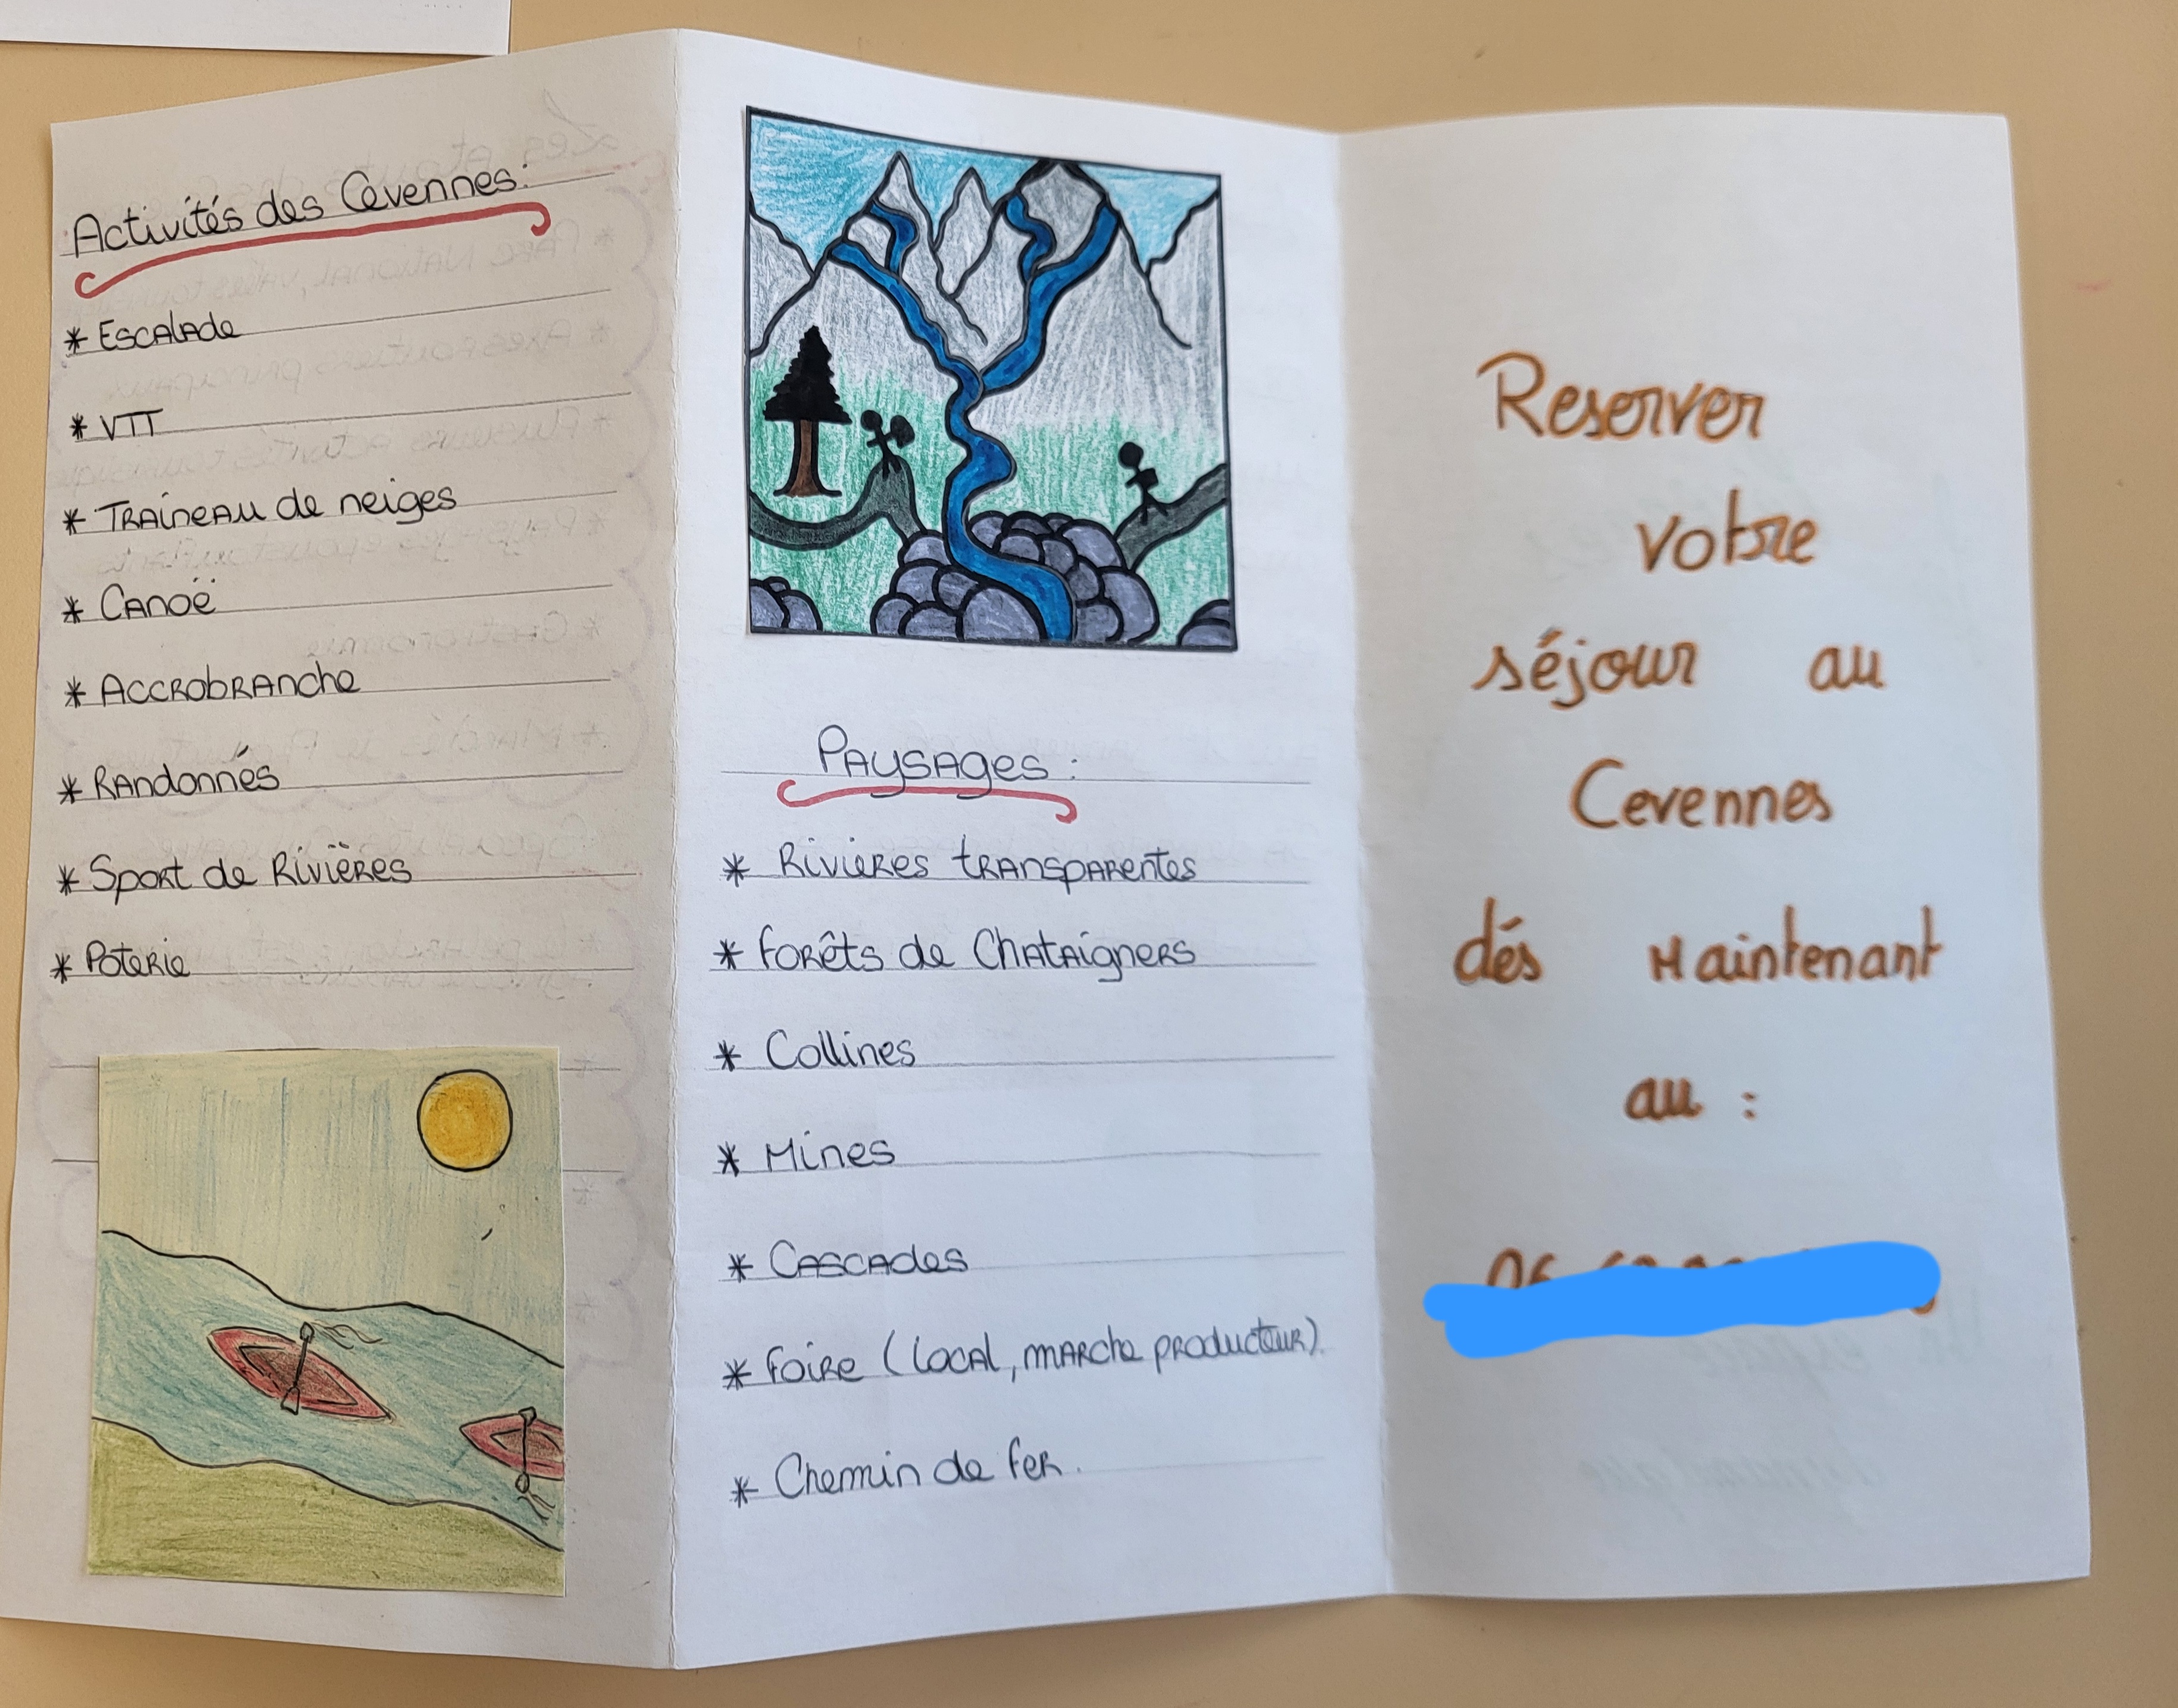 Activités des Cévennes:
* Escalade
* VTT
* Traineau de neiges
* Canoë
* Accrobranche
* Randonnés
* Sport de Rivières
* Poterie
Paysages :
* Rivieres transparentes
* Forêts de Chataigners
* Collines
* Mines
* Cascades
* Foire (local, marche producteur).
* Chemin de fer.
Reserver
votre
séjour au
Cevennes
dés Maintenant
au :